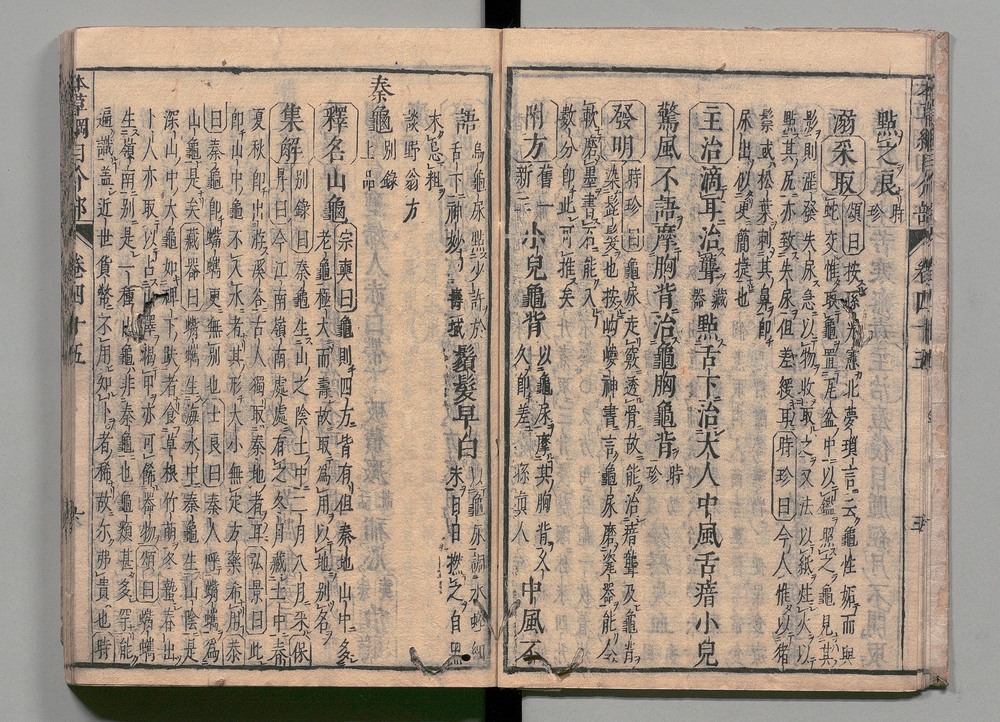 點之良時珍
溺采取頌曰按孫光憲北夢瑣言云龜性妬而與
蛇交惟取龜置瓦盆中以鑑照之龜見其
影則淫發失尿急以物收取之又法以紙炷火以
點其尻亦致失尿但差緩耳時珍曰今人惟以猪
鬃或松葉刺其鼻即
尿出似更簡捷也
主治滴耳治聾藏器點舌下治大人中風舌瘖小兒
驚風不語摩胸背治龜胸龜背時珍
發明時珍曰龜尿走竅透骨故能治瘖聾及龜背
染髭髮也按岣嶁神書言龜尿磨瓷器能令
軟磨墨書石能入
數分即此可推矣
附方舊一新二小兒龜背以龜尿摩其胸背久久即差孫真人中風不
語烏龜尿點少許於舌下神妙壽域鬚髮早白以龜尿調水蛭細末日日撚之自黑
末忌粗
談野翁方
秦龜別錄上品
釋名山龜宗奭曰龜則四方皆有但秦地山中多
老龜極大而壽故取為用以地別名
集解別錄曰秦龜生山之陰土中二月八月采保
昇曰今江南嶺南處處有之冬月藏土中春
夏秋即出游溪谷古人獨取秦地者耳弘景曰此
即山中龜不入水者其形大小無定方藥希用恭
曰秦龜即蟕蠵更無別也士良曰秦人呼蟕蠵為
山龜是矣藏器曰蟕蠵生海水中秦龜生山陰是
深山中大龜如碑下趺者食草根竹萌冬蟄春出
卜人亦取以占山澤揭甲亦可飾器物頌曰蟕蠵
生嶺南別是一種山龜非秦龜也龜類甚多罕能
遍識蓋近世貨幣不用知卜者稀故爾弗貴也時
本草綱目介部
卷四十五